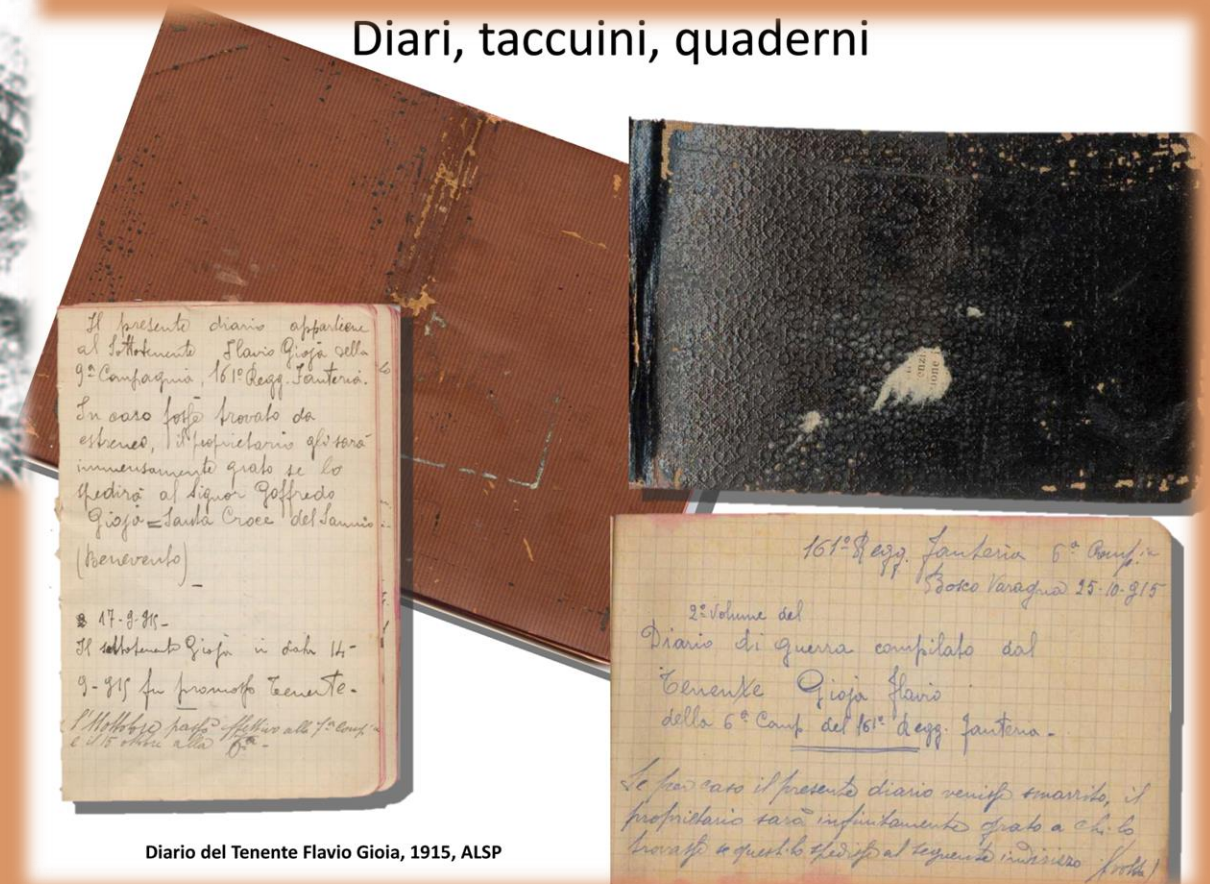 Diari, taccuini, quaderni
enzi
ione
Il presente diario appartiene
al Sottotenente Flavio Gioja della
9ª Compagnia, 161º Regg. Fanteria.
In caso fosse trovato da
estraneo, il proprietario gli sarà
immensamente grato se lo
spedirà al Signor Goffredo
Gioja = Santa Croce del Sannio
(Benevento)
17-9-915-
Il sottotenente Gioja in data 14-
9-915 fu promosso Tenente.
l'11 ottobre passò effettivo alla 7ª Comp.
e il 15 alla 6ª -
161º Regg. Fanteria 6ª Comp.
Bosco Varagna 25-10-915
2º Volume del
Diario di guerra compilato dal
Tenente Gioja Flavio
della 6ª Comp. del 161º Regg. Fanteria -
Se per caso il presente diario venisse smarrito, il
proprietario sarà infinitamente grato a chi lo
trovasse se questi lo spedisse al seguente indirizzo
Diario del Tenente Flavio Gioia, 1915, ALSP